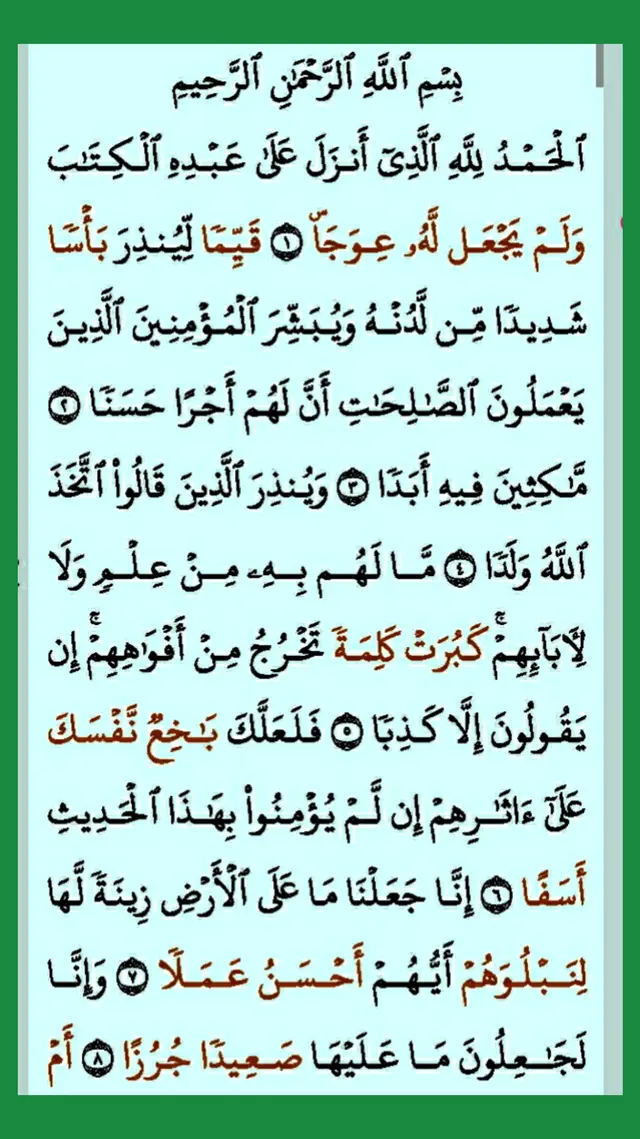 بِسْمِ ٱللَّهِ ٱلرَّحْمَٰنِ ٱلرَّحِيمِ
ٱلْحَمْدُ لِلَّهِ ٱلَّذِىٓ أَنزَلَ عَلَىٰ عَبْدِهِ ٱلْكِتَٰبَ
وَلَمْ يَجْعَل لَّهُۥ عِوَجَاۜ ١ قَيِّمًا لِّيُنذِرَ بَأْسًا
شَدِيدًا مِّن لَّدُنْهُ وَيُبَشِّرَ ٱلْمُؤْمِنِينَ ٱلَّذِينَ
يَعْمَلُونَ ٱلصَّٰلِحَٰتِ أَنَّ لَهُمْ أَجْرًا حَسَنًا ٢
مَّٰكِثِينَ فِيهِ أَبَدًا ٣ وَيُنذِرَ ٱلَّذِينَ قَالُوا۟ ٱتَّخَذَ
ٱللَّهُ وَلَدًا ٤ مَّا لَهُم بِهِۦ مِنْ عِلْمٍ وَلَا
لِـَٔابَآئِهِمْ ۚ كَبُرَتْ كَلِمَةً تَخْرُجُ مِنْ أَفْوَٰهِهِمْ ۚ إِن
يَقُولُونَ إِلَّا كَذِبًا ٥ فَلَعَلَّكَ بَٰخِعٌ نَّفْسَكَ
عَلَىٰٓ ءَاثَٰرِهِمْ إِن لَّمْ يُؤْمِنُوا۟ بِهَٰذَا ٱلْحَدِيثِ
أَسَفًا ٦ إِنَّا جَعَلْنَا مَا عَلَى ٱلْأَرْضِ زِينَةً لَّهَا
لِنَبْلُوَهُمْ أَيُّهُمْ أَحْسَنُ عَمَلًا ٧ وَإِنَّا
لَجَٰعِلُونَ مَا عَلَيْهَا صَعِيدًا جُرُزًا ٨ أَمْ